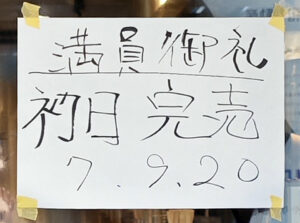 満員御礼
初日完売
7.9.20